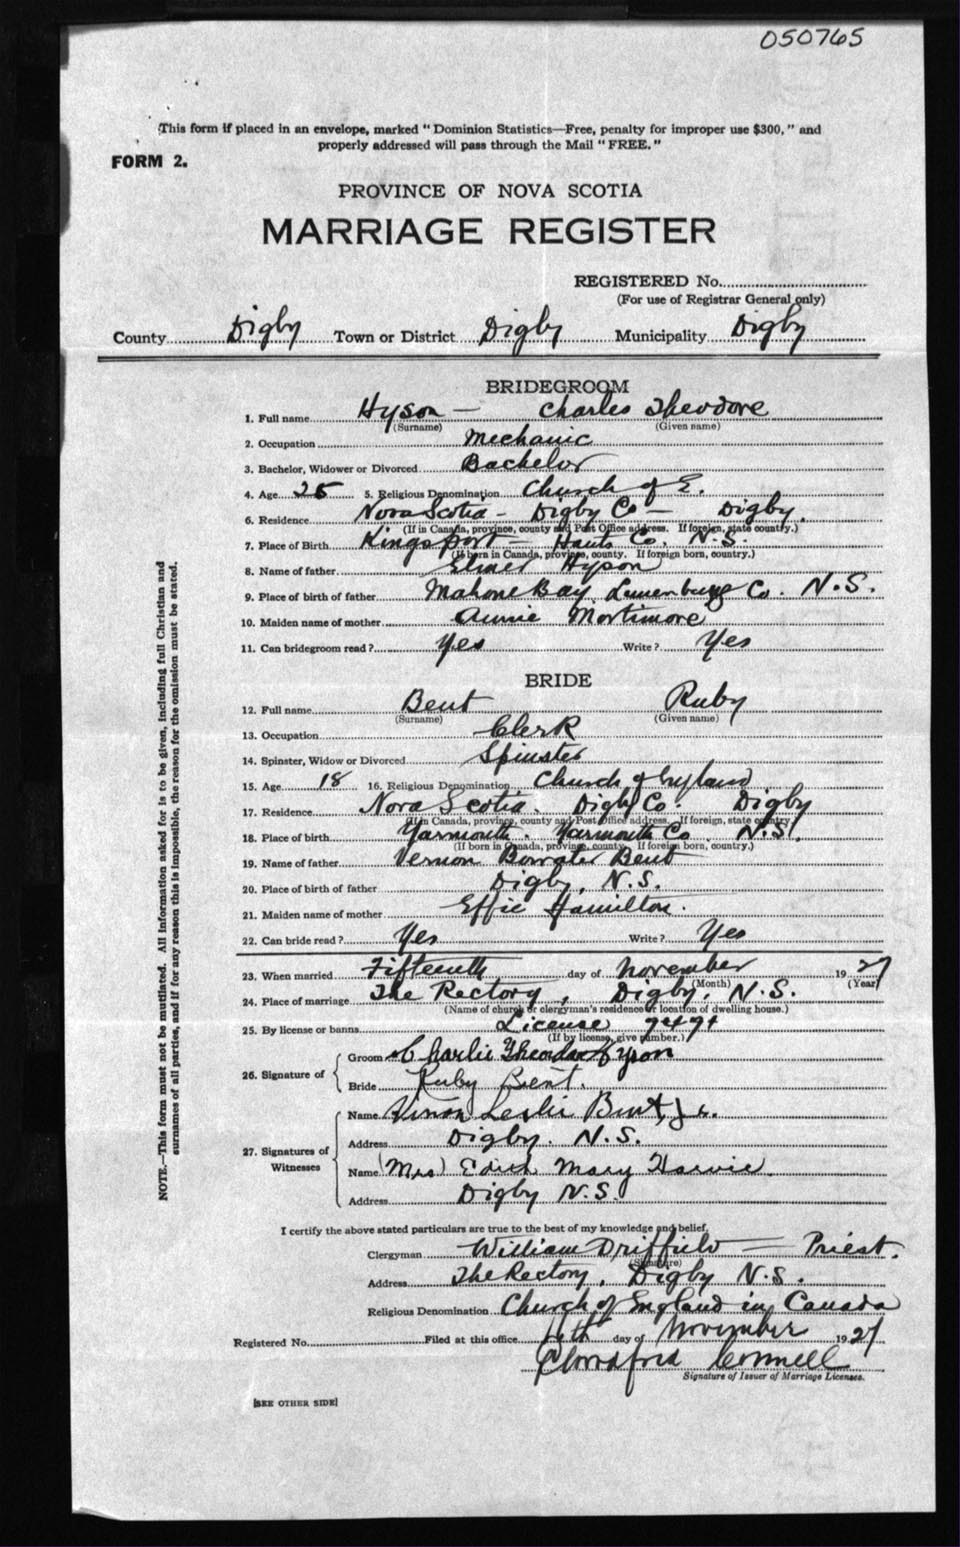 050765
This form if placed in an envelope, marked "Dominion Statistics—Free, penalty for improper use $300," and
properly addressed will pass through the Mail "FREE."
FORM 2.
PROVINCE OF NOVA SCOTIA
MARRIAGE REGISTER
REGISTERED No.
(For use of Registrar General only)
County Digby Town or District Digby Municipality Digby
BRIDEGROOM
1. Full name Hyson — Charles Theodore
(Surname) (Given name)
2. Occupation Mechanic
3. Bachelor, Widower or Divorced Bachelor
4. Age 25 5. Religious Denomination Church of E.
6. Residence Nova Scotia — Digby Co — Digby.
(If in Canada, province, county and Post Office address. If foreign, state county.)
7. Place of Birth Kingsport — Hants Co. N.S.
(If born in Canada, province, county. If foreign born, country.)
8. Name of father Elmer Hyson
9. Place of birth of father Mahone Bay, Lunenburg Co. N.S.
10. Maiden name of mother Annie Mortimore
11. Can bridegroom read? Yes Write? Yes
BRIDE
12. Full name Bent Ruby
(Surname) (Given name)
13. Occupation Clerk
14. Spinster, Widow or Divorced Spinster
15. Age 18 16. Religious Denomination Church of England
17. Residence Nova Scotia. Digby Co. Digby
(If in Canada, province, county and Post Office address. If foreign, state country.)
18. Place of birth Yarmouth. Yarmouth Co. N.S.
(If born in Canada, province, county. If foreign born, country.)
19. Name of father Vernon Bowater Bent
20. Place of birth of father Digby, N.S.
21. Maiden name of mother Effie Hamilton.
22. Can bride read? Yes Write? Yes
23. When married Fifteenth day of November 1927
(Month) (Year)
24. Place of marriage The Rectory, Digby, N.S.
(Name of church or clergyman's residence or location of dwelling house.)
25. By license or banns License
(If by license, give number.)
26. Signature of
Groom Charlie Theodore Hyson
Bride Ruby Bent.
27. Signatures of Witnesses
Name Leslie Bent, Jr.
Address Digby. N.S.
Name (Mrs) Edith Mary Harvie
Address Digby N.S.
I certify the above stated particulars are true to the best of my knowledge and belief.
Clergyman William Driffield — Priest.
(Signature)
Address The Rectory, Digby N.S.
Religious Denomination Church of England in Canada
Registered No. Filed at this office 16th day of November 1927
Connell
Signature of Issuer of Marriage Licenses.
[SEE OTHER SIDE]
NOTE.—This form must not be mutilated. All information asked for is to be given, including full Christian and
surnames of all parties, and if for any reason this is impossible, the reason for the omission must be stated.